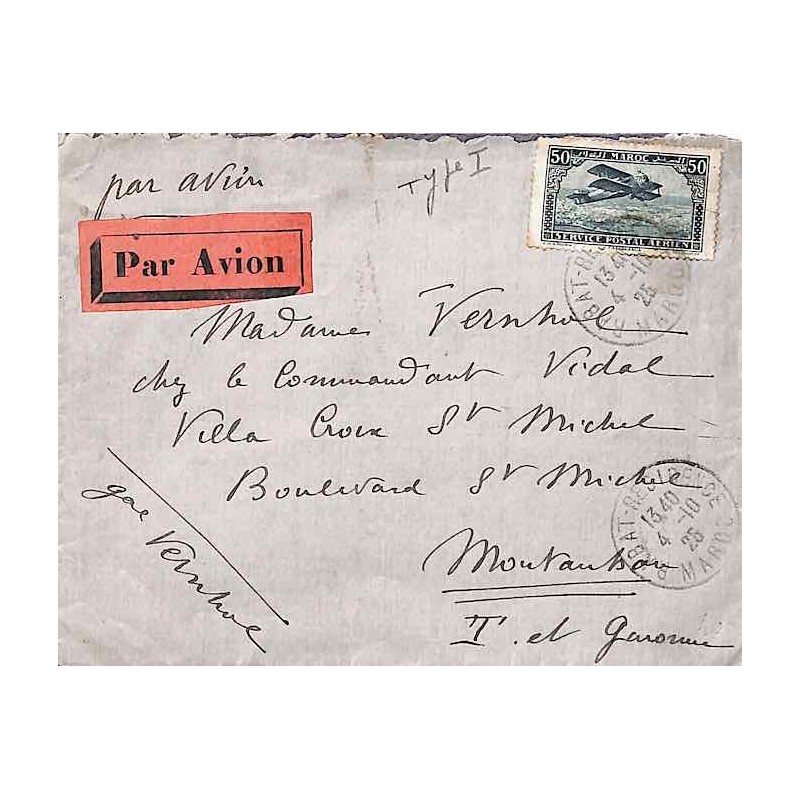 par avion
Type I
Par Avion
50 MAROC 50
SERVICE POSTAL AERIEN
RABAT-RESIDENCE
13 40
4 -10
25
MAROC
Madame Vernhol
chez le Commandant Vidal
Villa Croix St Michel
Boulevard St Michel
Montauban
T. et Garonne
Vernhol
RABAT-RESIDENCE
13 40
4 -10
25
MAROC